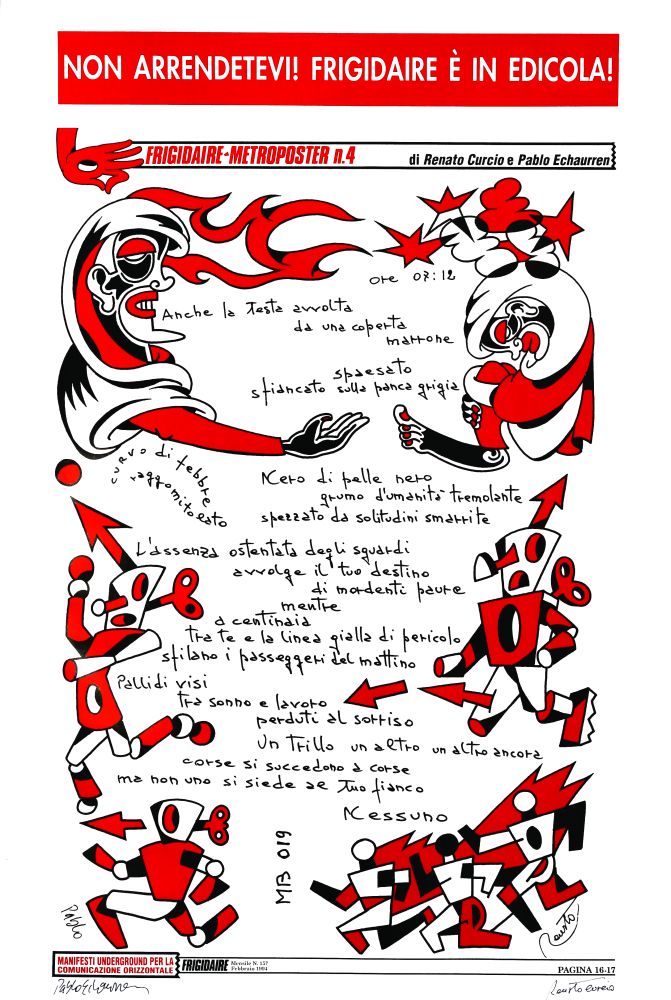 NON ARRENDETEVI! FRIGIDAIRE È IN EDICOLA!
FRIGIDAIRE-METROPOSTER n.4
di Renato Curcio e Pablo Echaurren
Ore 07:12
Anche la testa avvolta
da una coperta
marrone
spaesato
sfiancato sulla panca grigia
curvo di febbre
raggomitolato
Nero di pelle nero
grumo d'umanità tremolante
spezzato da solitudini smarrite
L'assenza ostentata degli sguardi
avvolge il tuo destino
di mordenti paure
mentre
a centinaia
tra te e la linea gialla di pericolo
sfilano i passeggeri del mattino
Pallidi visi
tra sonno e lavoro
perduti al sorriso
Un trillo un altro un altro ancora
corse si succedono a corse
ma non uno si siede al tuo fianco
Nessuno
MB 019
Pablo
MANIFESTI UNDERGROUND PER LA
COMUNICAZIONE ORIZZONTALE
FRIGIDAIRE
Mensile N. 157
Febbraio 1994
PAGINA 16-17
Pablo Echaurren